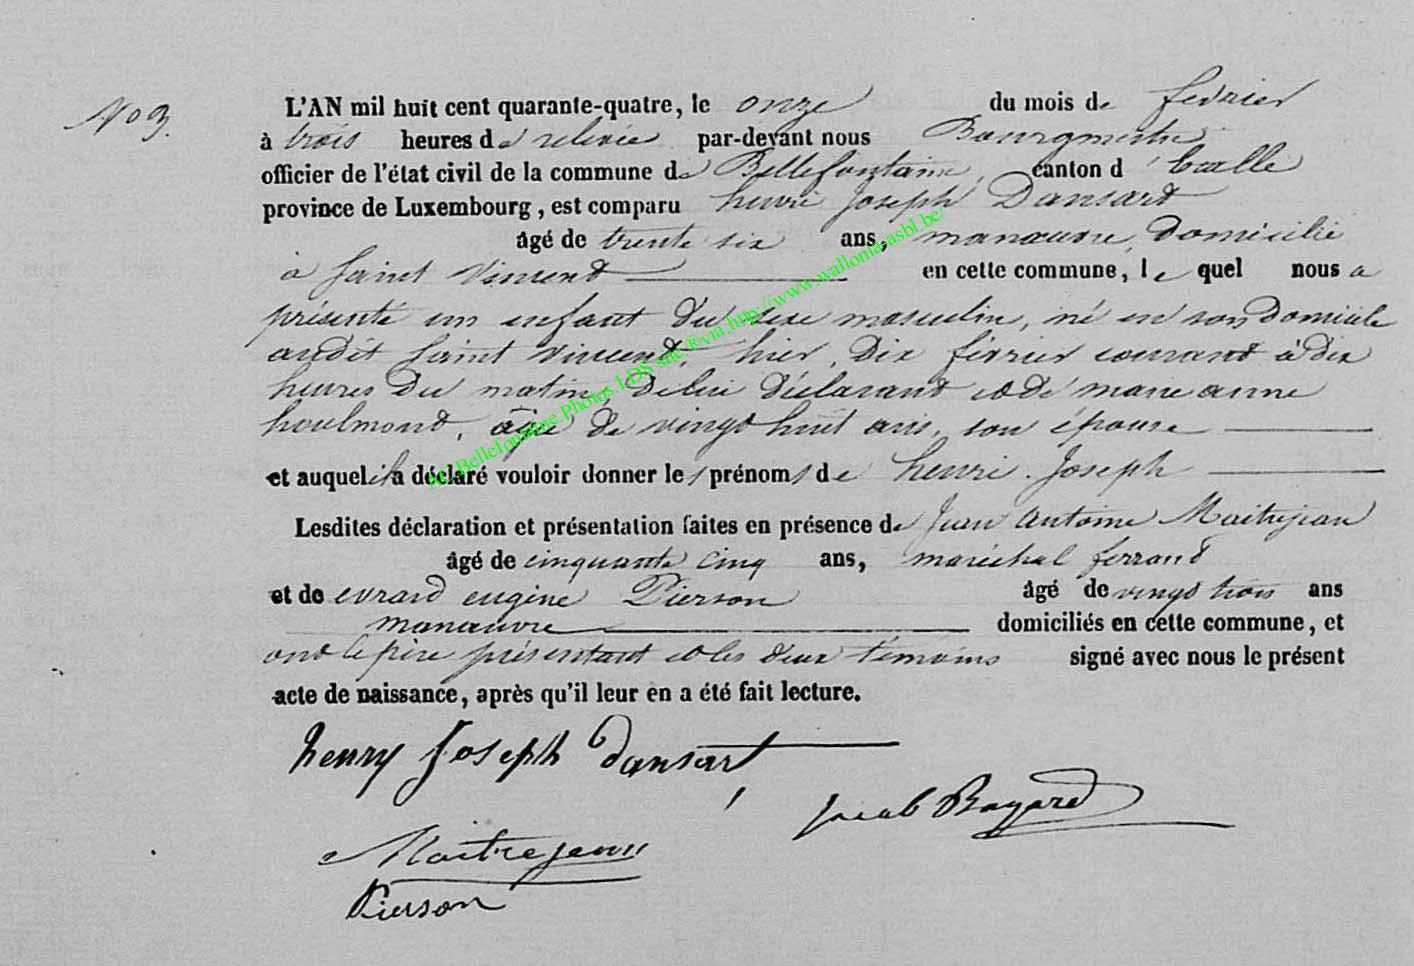 No 3.
L'AN mil huit cent quarante-quatre, le onze du mois de fevrier
à trois heures de relevée par-devant nous Bourgmestre
officier de l'état civil de la commune de Bellefontaine, canton d'Etalle
province de Luxembourg, est comparu henri Joseph Dansart
âgé de trente six ans, manœuvre, domicilié
à Saint Vincent en cette commune, lequel nous a
présenté un enfant du sexe masculin, né en son domicile
audit Saint Vincent, hier, dix février courant à dix
heures du matin, de lui déclarant et de marie anne
houlmont, âgée de vingt huit ans, son épouse
et auquel il a déclaré vouloir donner les prénoms de henri Joseph
Lesdites déclaration et présentation faites en présence de Jean antoine Maitrejean
âgé de cinquante cinq ans, maréchal ferrant
et de evrard eugène Pierson âgé de vingt trois ans
manœuvre domiciliés en cette commune, et
ont le père présentant et les deux témoins signé avec nous le présent
acte de naissance, après qu'il leur en a été fait lecture.
henry Joseph dansart
Jacob Bayard
Maitrejean
Pierson
AC Bellefontaine.Photos LDS site ®via http://www.wallonia-asbl.be/